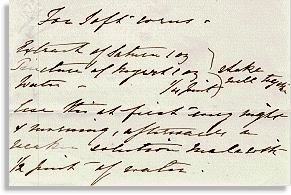 For Soft Corns -
Extract of Saturn 1 oz
Tincture of 1 oz } shake
Water - 1/4 pint } well together
Use this at first every night
& morning, afterwards a
weaker solution made with
1/2 pint of water.